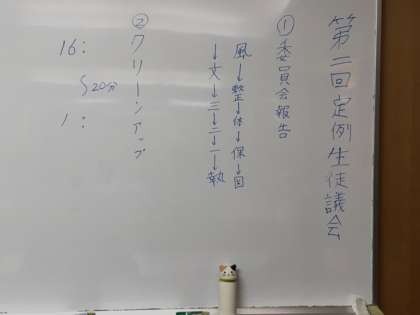 第二回定例生徒議会
①委員会報告
風→整→体→保→図
→文→三→二→一→執
②クリーンアップ
16:
〜20分
1: